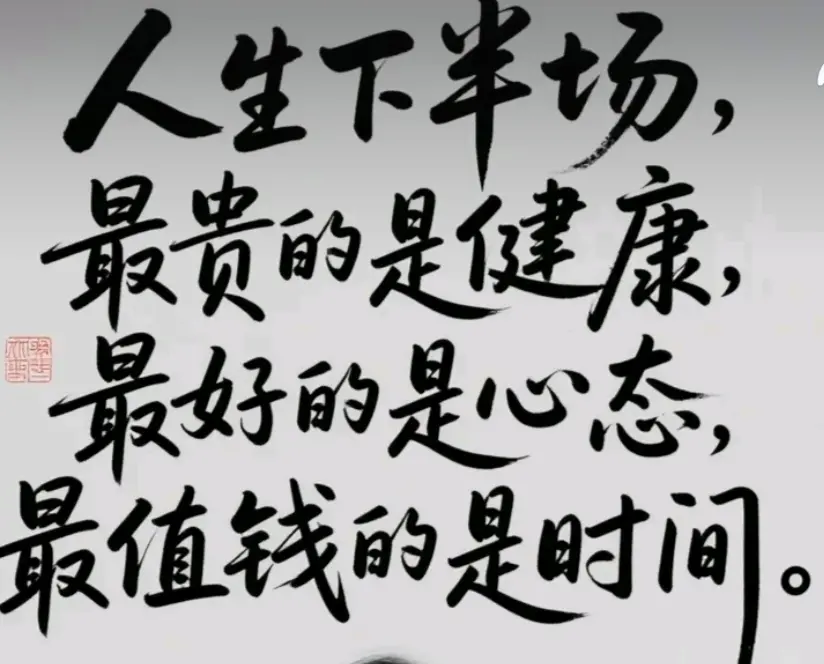 人生下半场，
最贵的是健康，
最好的是心态，
最值钱的是时间。